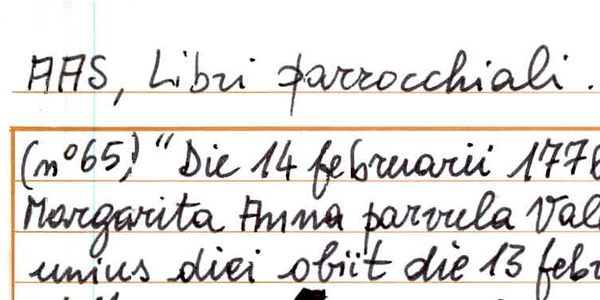 AAS, Libri parrocchiali.
(n°65,) "Die 14 februarii 1776
Margarita Anna parvula Val
unius diei obiit die 13 febr